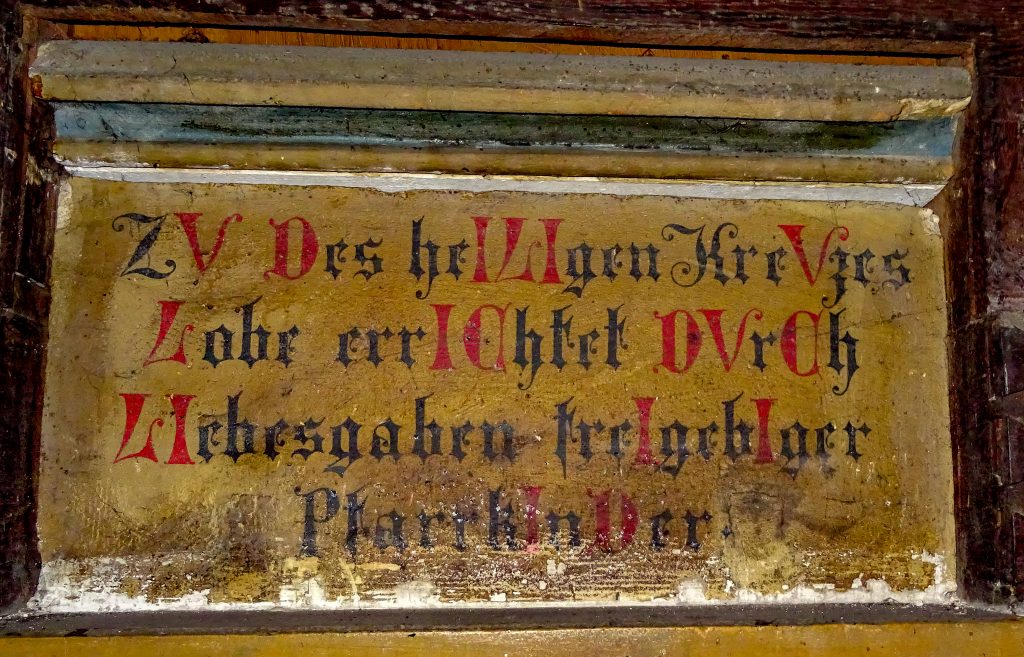 ZV Des heILIgen KreVzes
Lobe errIChtet DVrCh
LIebesgaben freIgebIger
PfarrkInDer.